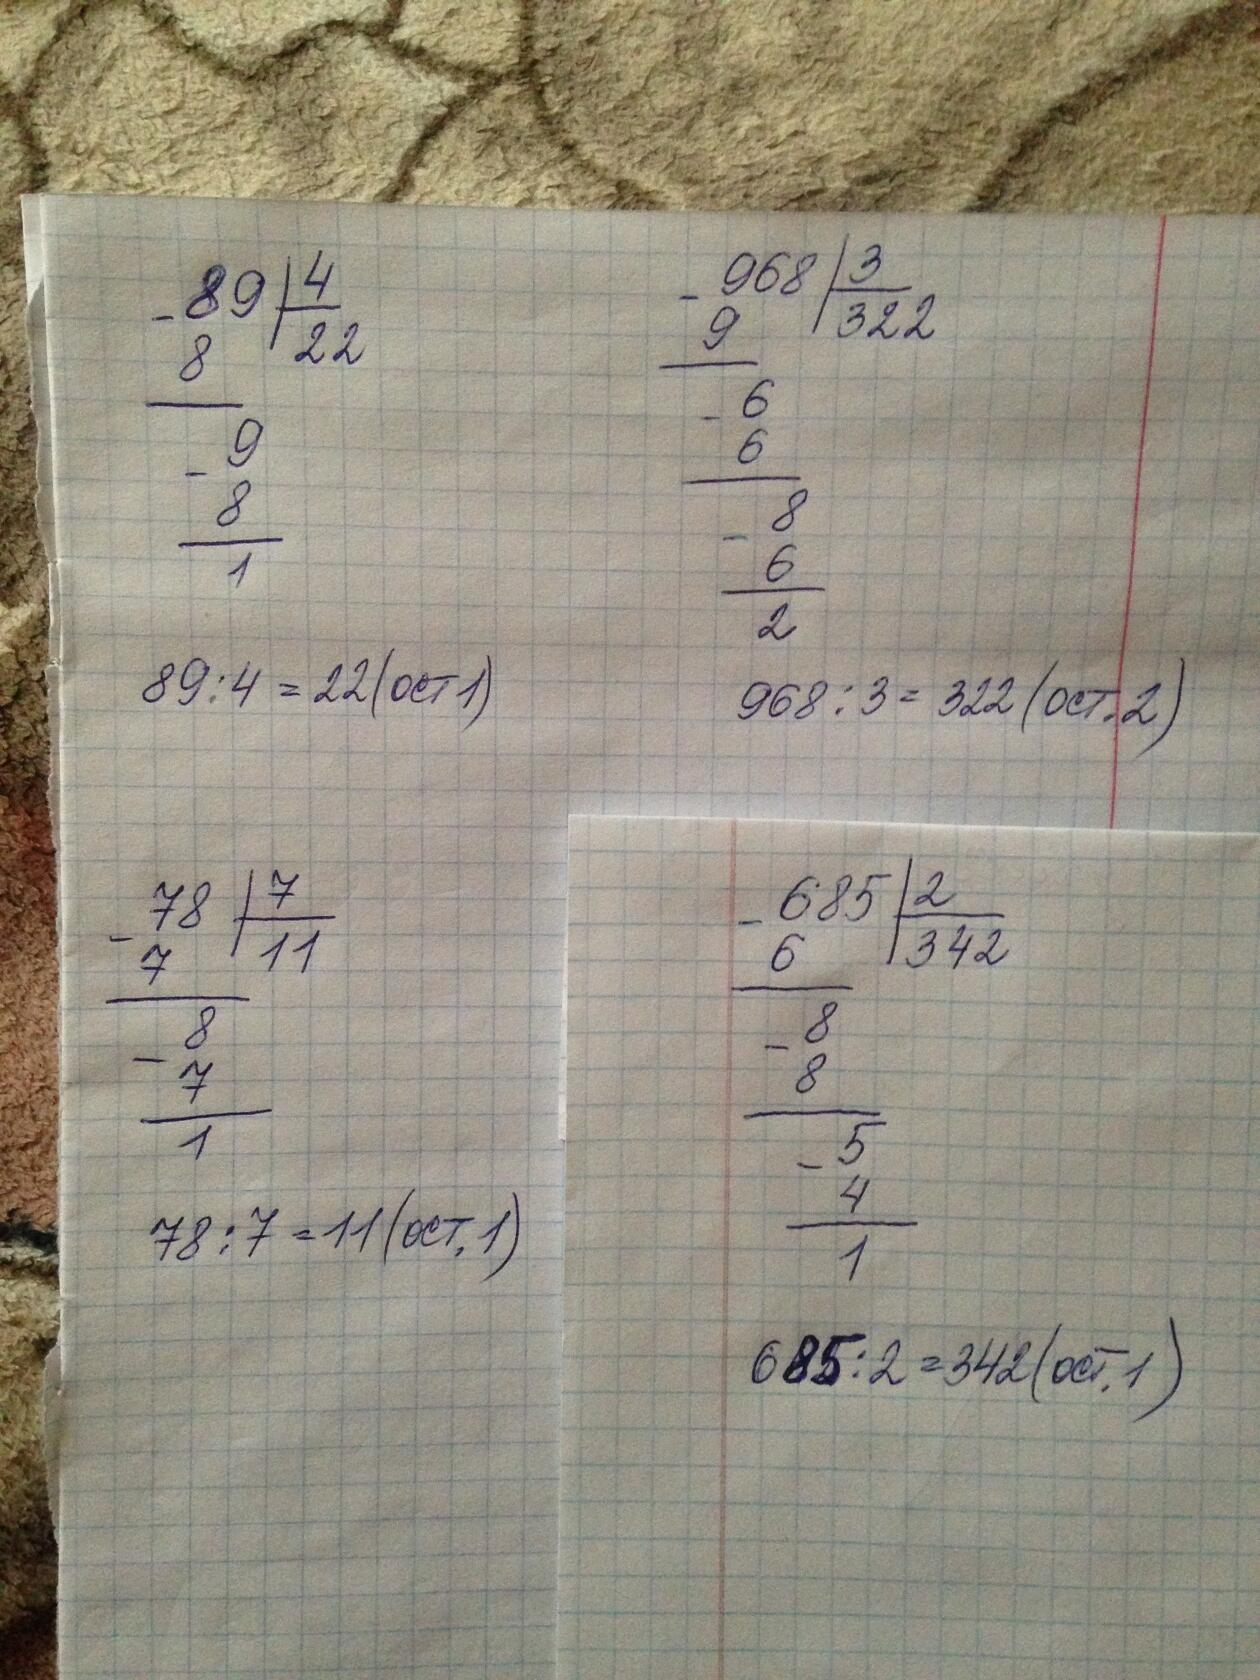 - 89 | 4
8 22
- 9
8
1
89:4=22(ост1)
- 968 | 3
9 322
- 6
6
- 8
6
2
968:3=322(ост.2)
- 78 | 7
7 11
- 8
7
1
78:7=11(ост.1)
- 685 | 2
6 342
- 8
8
- 5
4
1
685:2=342(ост.1)